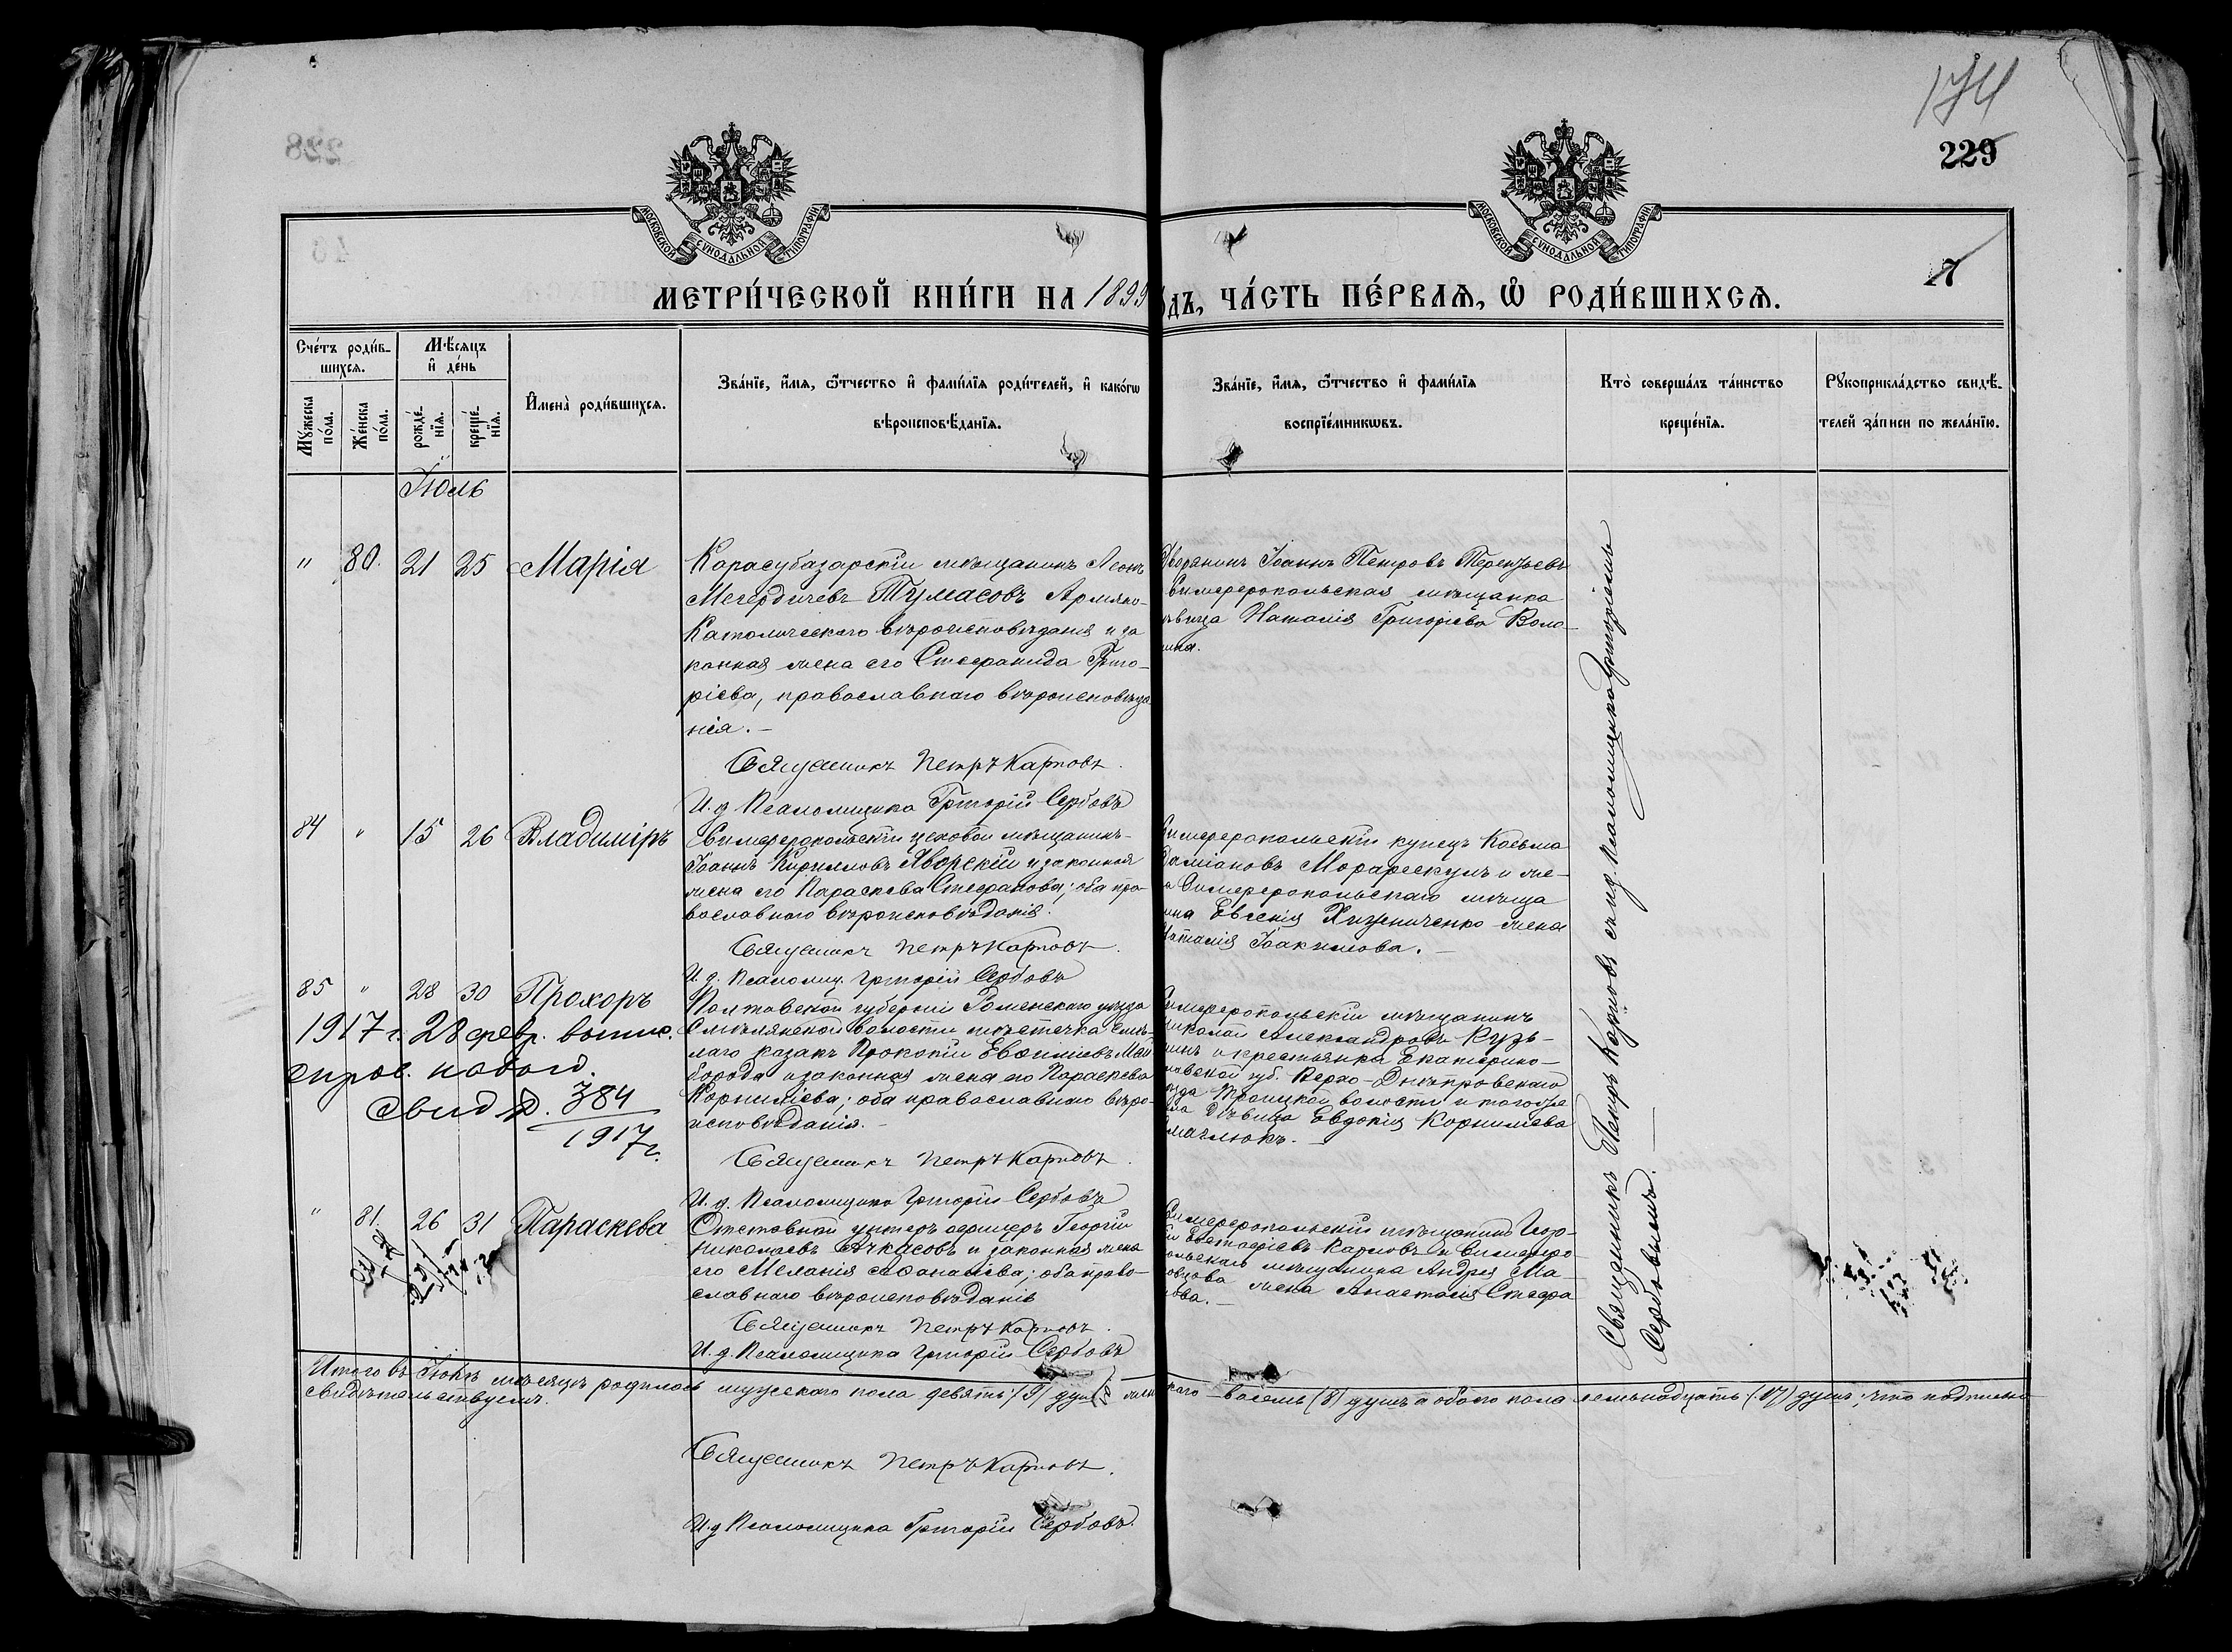 174
229
МОСКОВСКОЙ СУНОДАЛЬНОЙ ТИПОГРАФІИ
МОСКОВСКОЙ СУНОДАЛЬНОЙ ТИПОГРАФІИ
17
МЕТРИ́ЧЕСКОЙ КНИ́ГИ НА 1899
ОДЪ, ЧА́СТЬ ПЕ́РВАЯ, Ѽ РОДИ́ВШИХСЯ.
Сче́тъ роди́в-
шихся.
Мꙋ́жеска по́ла.
Же́нска по́ла.
Мѣ́сяцъ
и҆ де́нь
рожде́-
нїя.
креще́-
нїя.
И҆мена̀ роди́вшихся.
Зва́нїе, и҆́мя, ѻ҆́тчество и҆ фами́лїя роди́телей, и҆ како́гѡ
вѣроисповѣ́данїя.
Зва́нїе, и҆́мя, ѻ҆́тчество и҆ фами́лїя
воспрїе́мникѡвъ.
Кто̀ соверша́лъ та́инство
креще́нїя.
Рꙋкоприкла́дство свидѣ́-
телей за́писи по жела́нїю.
Іюль
" 80. 21 25 Марія
Карасубазарскій мѣщанинъ Леонъ
Мегердичевъ Тумасовъ Армяно-
Католическаго вѣроисповѣданія и за
конная жена его Стефанида Григо-
рiева, православнаго вѣроисповѣда
нія. –
Священникъ Петръ Карповъ.
И. д. Псаломщика Григорій Сербовъ
Дворянинъ Іоаннъ Петровъ Терентьевъ
Симферопольская мѣщанка
ѣвица Наталія Григоріева Воло-
ина.
84 " 15 26 Владиміръ
Симферопольскій цеховой мѣщанинъ-
Іоаннъ Кирилловъ Яворскій и законная
жена его Параскева Стефанова; оба пра-
вославнаго вѣроисповѣданія.
Священникъ Петръ Карповъ.
И. д. Псаломщ. Григорій Сербовъ
Симферопольскій купецъ Косьма
Даміановъ Морарескулъ и же-
а Симферопольскаго мѣща
ина Евгенія жена
Наталія Іоакимова. –
85 " 28 30 Прохоръ
1917 г. 28 февр. выпис.
справ. повод.
Свид № 384
1917 г.
Полтавской губерніи Роменскаго уѣзда
Смѣлянской волости мѣстечка Смѣ-
лаго казакъ Прокопій Евѳиміевъ Май
борода и законная жена его Параскева
Корниліева; оба православнаго вѣро-
исповѣданія. –
Священникъ Петръ Карповъ.
И. д. Псаломщика Григорій Сербовъ
Симферопольскій мѣщанинъ
Николай Александровъ Кузь-
минъ и крестьянка Екатерино-
лавской губ. Верхо-Днѣпровскаго
ѣзда Троицкой волости и того же
ла дѣвица Евдокія Корниліева
–
" 81. 26 31 Параскева
Отставной унтеръ офицеръ Георгій
Николаевъ Ачкасовъ и законная жена
его Меланія Аѳанасіева; оба право-
славнаго вѣроисповѣданія
Священникъ Петръ Карповъ.
И. д. Псаломщика Григорій Сербовъ
Симферопольскій мѣщанинъ Геор-
ій Евстафіевъ Карповъ и Симферо-
польскаго мѣщанина Андрея Ма-
жена Анастасія Стефа
нова. –
Священникъ Петръ Карповъ съ и.д. псаломщика Григоріемъ
Сербовымъ. –
Итого въ Іюлѣ мѣсяцѣ родилось мужскаго пола девять (9) душъ женскаго – восемь (8) душъ а обоего пола семьнадцать (17) душъ; что подписью
свидѣтельствуемъ.
Священникъ Петръ Карповъ.
И. д. Псаломщика Григорій Сербовъ.